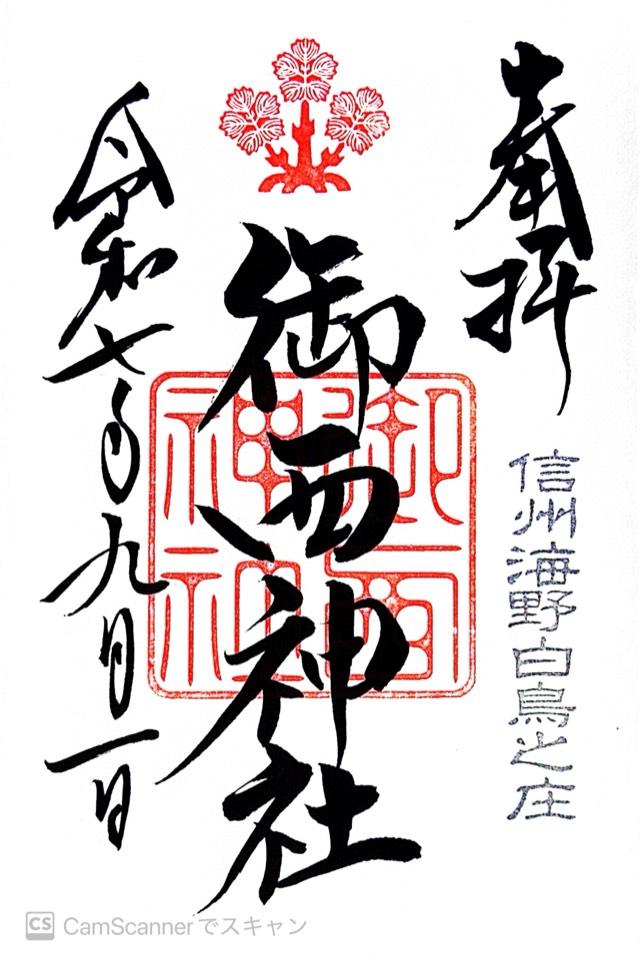 奉拝
信州海野白鳥之庄
御西神社
御西神社
令和七年九月一日
CS CamScannerでスキャン